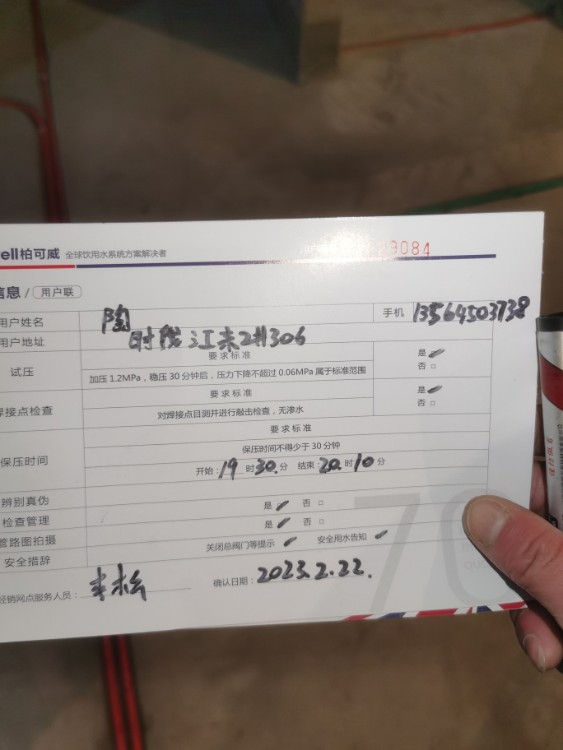 ell柏可威 全球饮用水系统方案解决者
9084
信息/ 用户联
用户姓名 陶 手机 13564503738
用户地址 时代江来2#306
试压 要求标准 是 否
加压1.2MPa，稳压30分钟后，压力下降不超过0.06MPa属于标准范围
焊接点检查 要求标准 是 否
对焊接点目测并进行敲击检查，无渗水
要求标准
保压时间 保压时间不得少于30分钟
开始：19时30分 结束：20时10分
辨别真伪 是 否
检查管理 是 否
管路图拍摄 关闭总阀门等提示 安全用水告知
安全措辞
经销网点服务人员： 确认日期：2023.2.22.